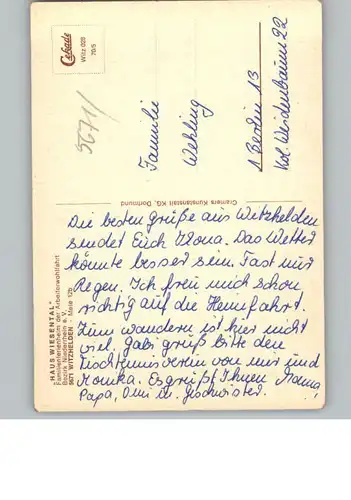 Cekade
Witz 029
70/5
5671/
Familie
Wehling
1 Berlin 13
Kol. Weidenbaum 22
Cramers Kunstanstalt KG, Dortmund
„HAUS WIESENTAL"
Familienferienheim der Arbeiterwohlfahrt
Bezirk Niederrhein e. V.
5671 WITZHELDEN
Die besten grüße aus Witzhelden
sendet Euch Ilona. Das Wetter
könnte besser sein. Fast nur
Regen. Ich freu mich schon
richtig auf die Heimfahrt.
Zum wandern ist hier nicht
viel. Gabi grüß bitte den
Tischtennisverein von mir und
Monika. Es grüßt Ihnen Mama,
Papa, Omi u. Geschwister.